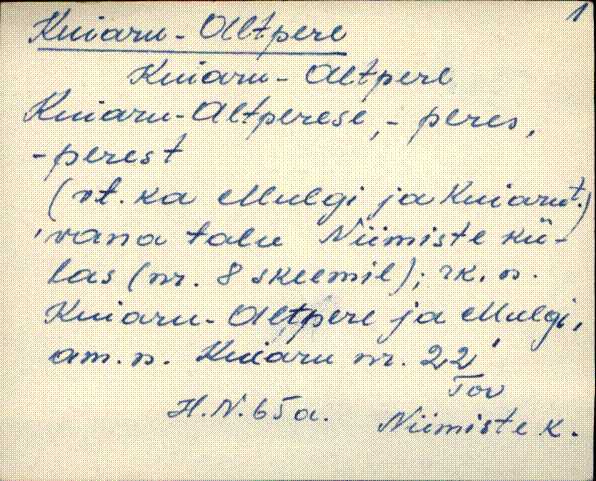 1
Kuiaru-Altpere
Kuiaru-Altpere
Kuiaru-Altperese, -peres,
-perest
(vt. ka Mulgi ja Kuiaru t.)
vana talu Niimiste kü-
las (nr. 8 skeemil); rk. n.
Kuiaru-Altpere ja Mulgi,
am. n. Kuiaru nr. 22
Tor
H.N. 65 a.
Niimiste k.